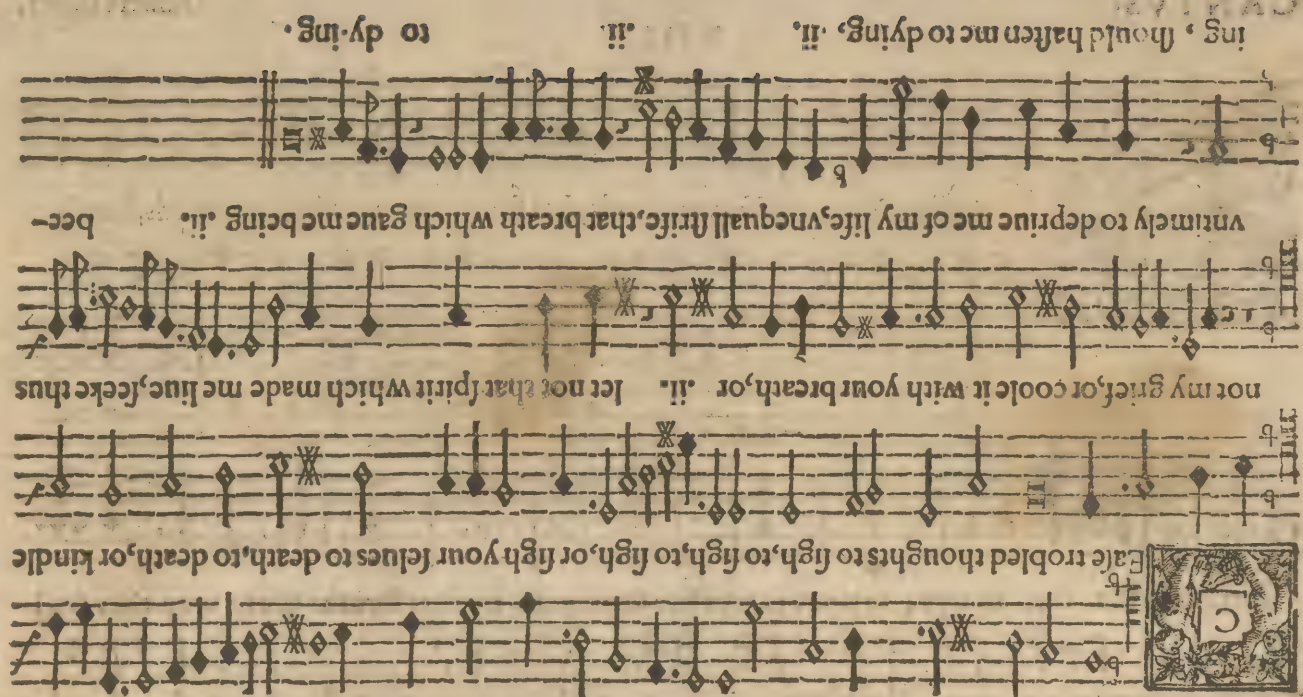 CEase trobled thoughts to ſigh, to ſigh, to ſigh, or ſigh your ſelues to death, to death, or kindle
not my grief, or coole it with your breath, or .ii. let not that ſpirit which made me liue, ſeeke thus
vntimely to depriue me of my life, vnequall ſtrife, that breath which gaue me being .ii. bee-
ing, ſhould haſten me to dying, .ii. .ii. to dy-ing.